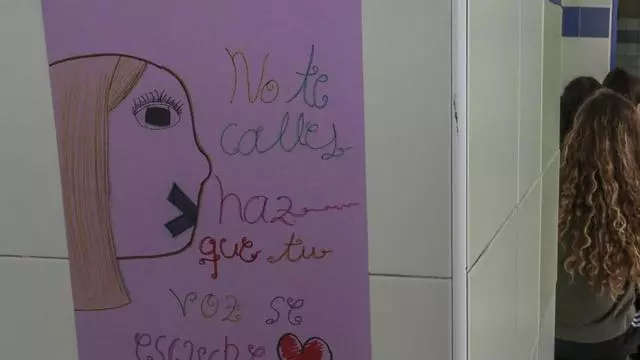 No te
calles
haz
que tu
voz se
escuche